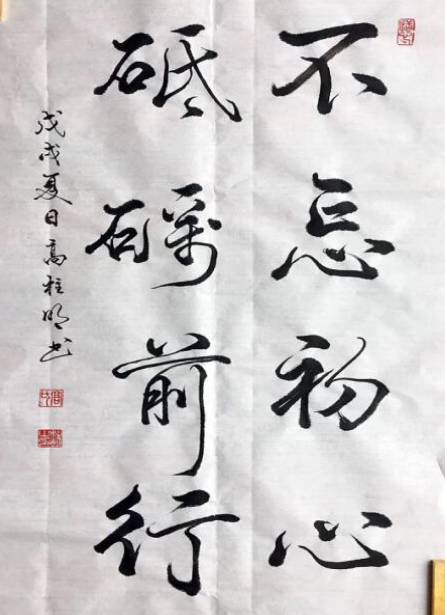 不忘初心
砥砺前行
戊戌夏日高柱明书